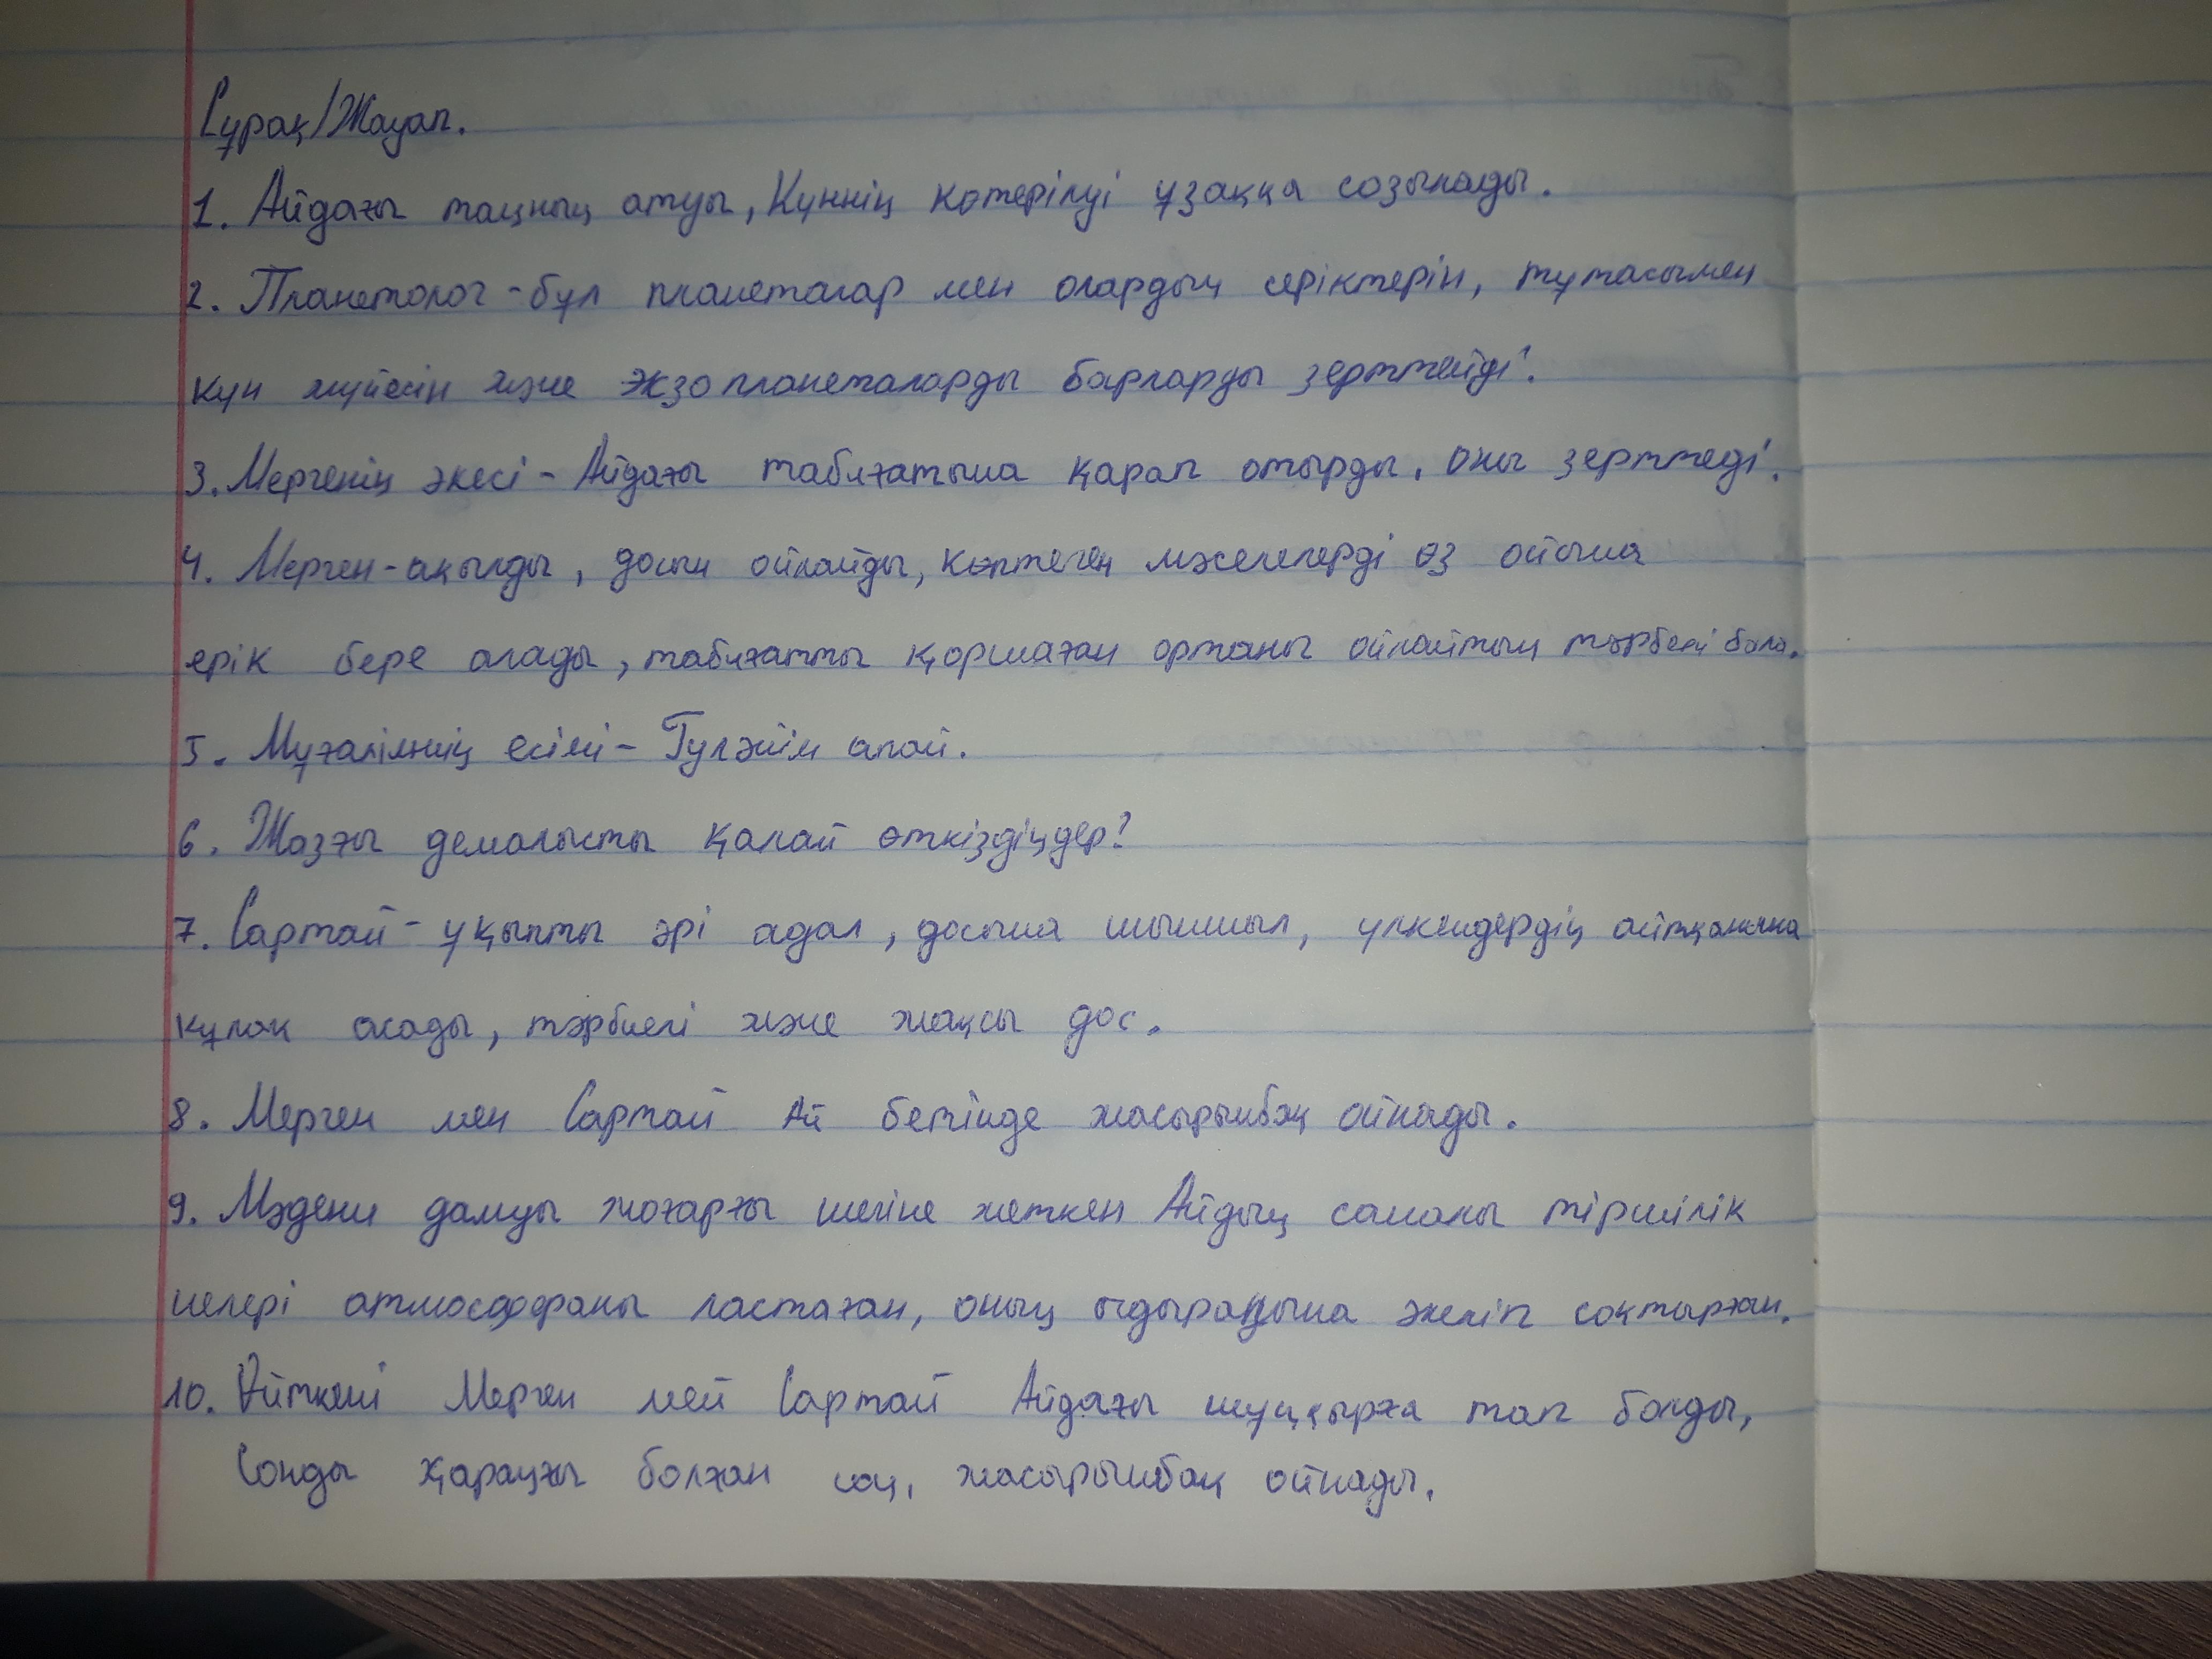 Сұрақ/Жауап.
1. Айдағы таңның атуы, Күннің көтерілуі ұзаққа созылады.
2. Планетолог - бұл планеталар мен олардың серіктерін, тұтасымен
күн жүйесін және экзопланеталарды барларды зерттейді.
3. Мергенің әкесі - Айдағы табиғатына қарап отырды, оны зерттеді.
4. Мерген - ақылды, досын ойлайды, көптеген мәселелерді өз ойына
ерік бере алады, табиғатты қоршаған ортаны ойлайтын тәрбелі бала.
5. Мұғалімнің есімі - Гүләйім апай.
6. Жазғы демалысты қалай өткіздіңдер?
7. Сартай - ұқыпты әрі адал, досына шыншыл, үлкендердің айтқанына
құлақ асады, тәрбиелі және жақсы дос.
8. Мерген мен Сартай Ай бетінде жасырынбақ ойнады.
9. Мәдени дамуы жоғарғы шегіне жеткен Айдың саналы тіршілік
иелері атмосфераны ластаған, оның ыдырауына әкеліп соқтырған.
10. Өйткені Мерген мен Сартай Айдағы шұңқырға тап болды,
Сонды қараңғы болған соң, жасырынбақ ойнады.